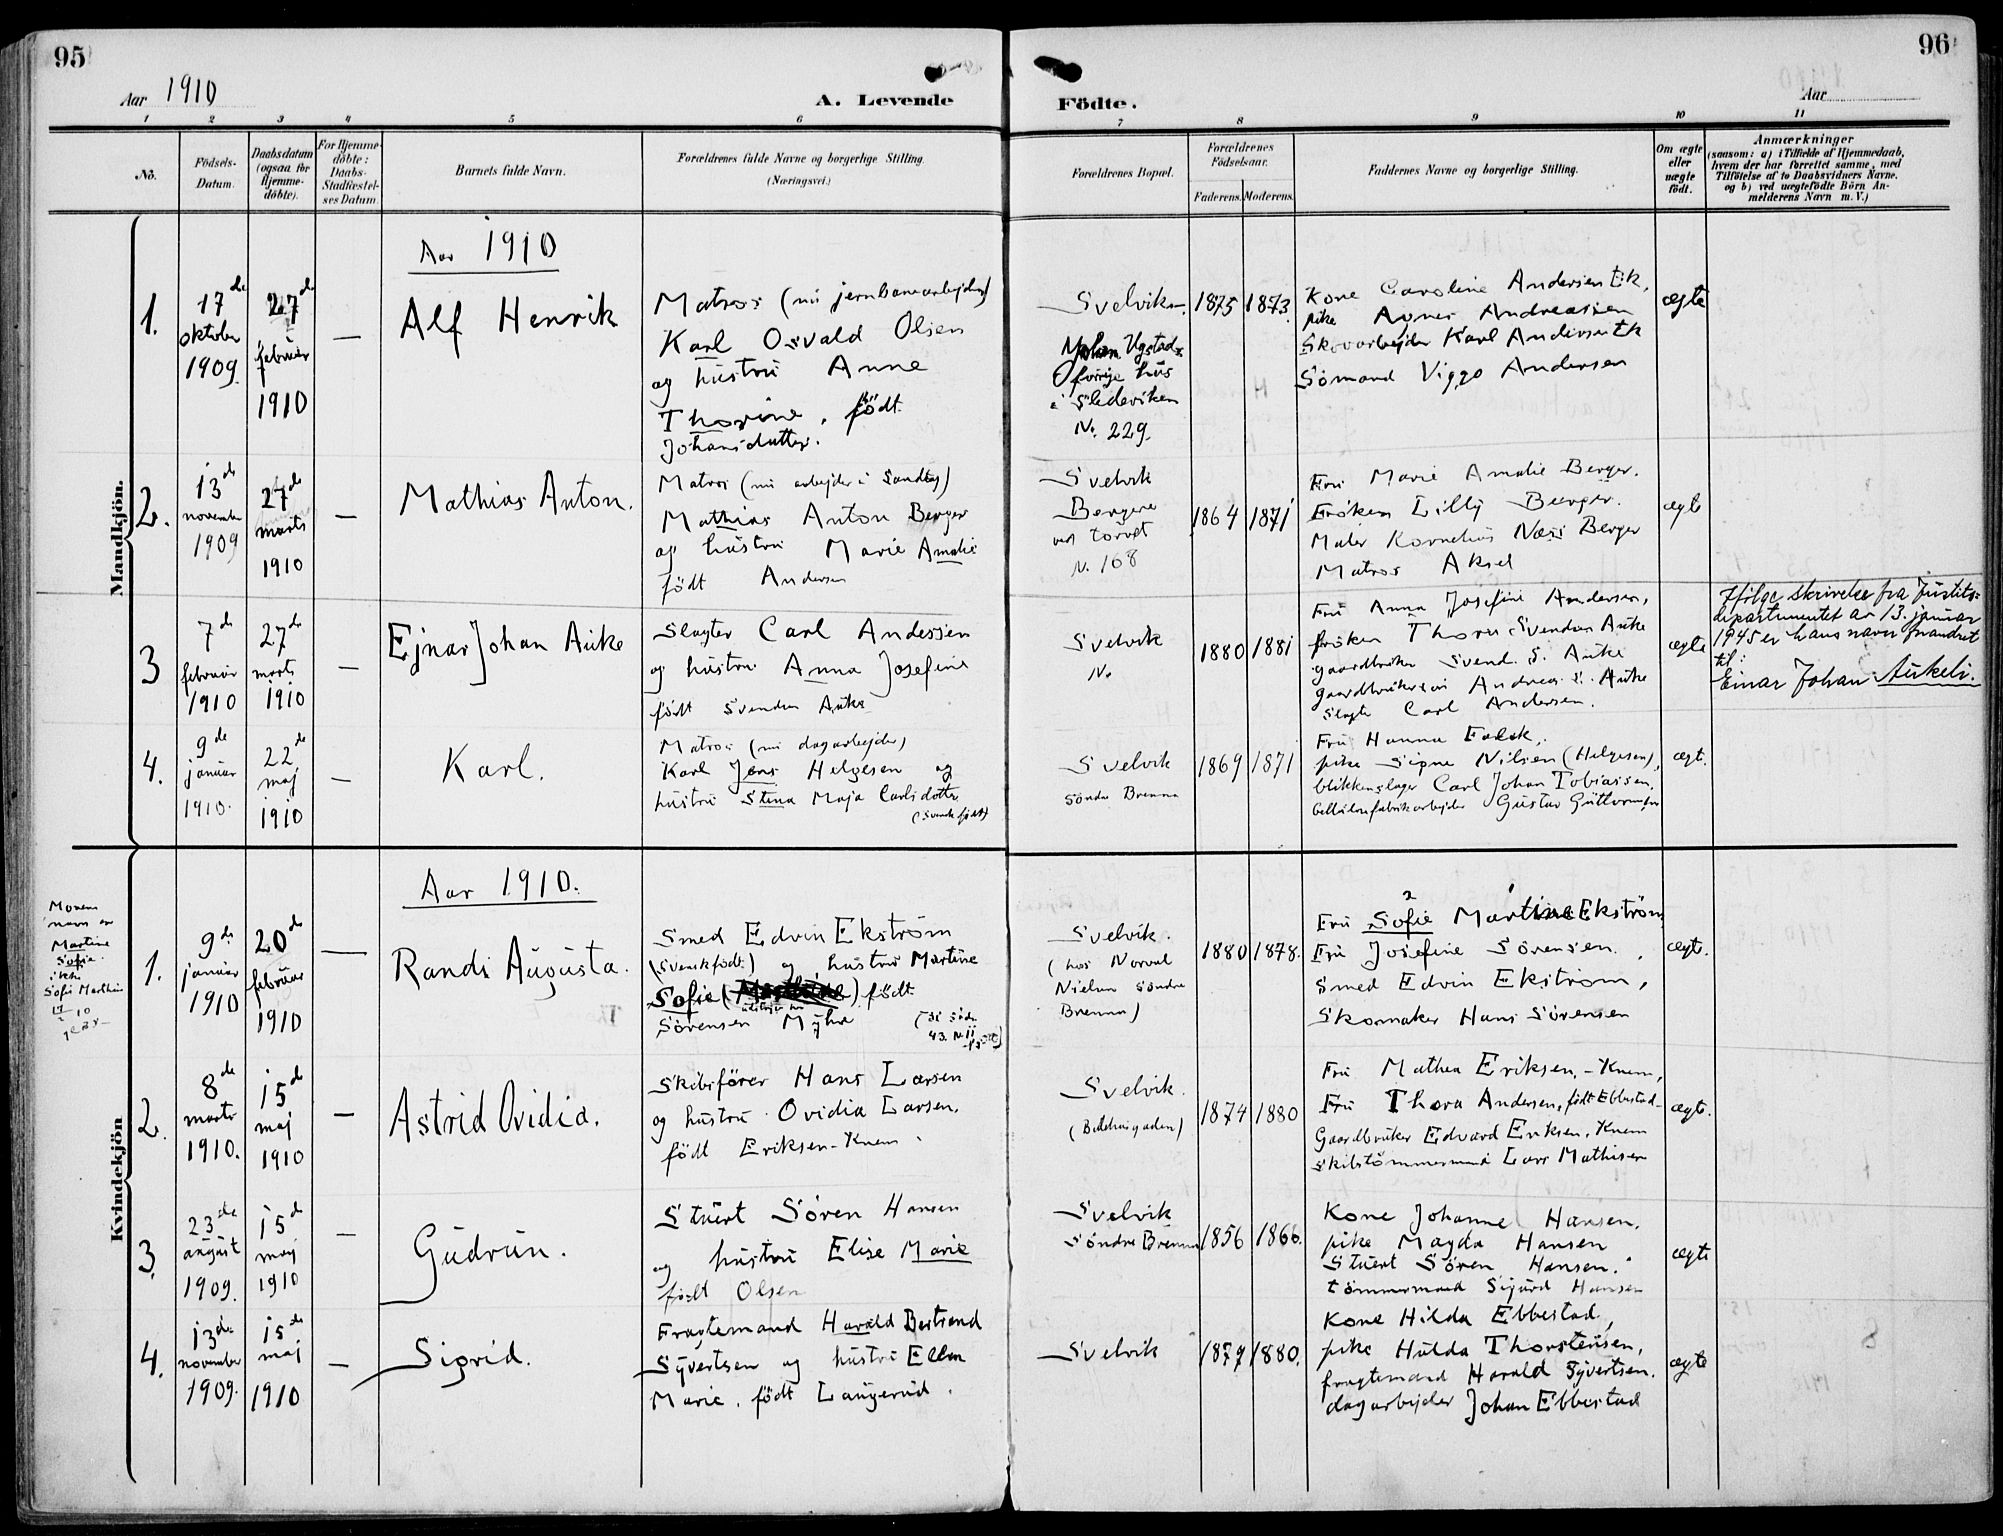 95
96
Aar 1910
A. Levende
Födte.
Aar
1 2 3 4 5 6 7 8 9 10 11
No.
Födsels-
Datum.
Daabsdatum
(ogsaa for
Hjemme-
döbte).
For Hjemme-
döbte:
Daabs-
Stadfæstel-
ses Datum.
Barnets fulde Navn.
Forældrenes fulde Navne og borgerlige Stilling.
(Næringsvei.)
Forældrenes Bopæl.
Forældrenes
Födselsaar.
Faderens.
Moderens.
Faddernes Navne og borgerlige Stilling.
Om ægte
eller
uægte
födt.
Anmærkninger
(saasom: a) i Tilfælde af Hjemmedaab,
hvem der har forrettet samme, med
Tilföielse af to Daabsvidners Navne.
og b) ved uægtefödte Börn An-
melderens Navn m. V.)
Mandkjön.
Aar 1910
1.
17de
oktober
1909.
27de
februar
1910
—
Alf Henrik
Matros (nu jernbanearbejder)
Karl Osvald Olsen
og hustru Anne
Thorine, födt
Johansdatter.
Svelvik
Johan Ugstads
forrige hus
i Sledeviken
No. 229.
1875
1873.
Kone Caroline Andersen Ek,
pike Agnes Andreasen
Skovarbejder Karl Andersen Ek
Sömand Viggo Andersen
ægte
2.
13de
november
1909
27de
marts
1910
—
Mathias Anton.
Matros (nu arbejder i Sandtag)
Mathias Anton Berger
og hustru Marie Amalie
födt Andersen
Svelvik
Bergere
ved torvet
N. 168
1864
1871
Fru Marie Amalie Berger.
Fröken Lilly Berger.
Maler Kornelius Næss Berger
Matros Aksel
ægte
3
7de
februar
1910
27de
marts
1910
—
Ejnar Johan Auke
Slagter Carl Andersen
og hustru Anna Josefine
födt Svendsen Auke
Svelvik
No
1880
1881
Fru Anna Josefine Andersen,
fröken Thora Svendsen Auke
gaardbruker Svend S. Auke
gaardbrukersön Andreas S. Auke
Slagter Carl Andersen.
ægte
Ifölge skrivelse fra Justits-
departementet av 13. januar
1945 er hans navn forandret
til:
Einar Johan Aukeli.
4.
9de
januar
1910.
22de
maj
1910
—
Karl.
Matros (nu dagarbejder)
Karl Jens Helgesen og
hustru Stina Maja Carlsdotter
(Svensk födt)
Svelvik
Söndre Brenna
1869
1871
Fru Hanna Falck,
pike Signe Nilsen (Helgesen),
blikkenslager Carl Johan Tobiassen,
cellulosefabrikarbejder Gustav Guttormsen
ægt.
Kvindekjön
Aar 1910.
Morens
navn er
Martine
Sofie.
ikke
Sofie Marthine
1.
9de
januar
1910
20de
februar
1910
—
Randi Augusta.
Smed Edvin Ekström
(Svenskfödt) og hustru Martine
Sofie födt
Sörensen Myhre
Svelvik.
(hos Norval
Nielsen Söndre
Brenna)
1880
1878.
2
Fru Sofie Martine Ekström,
Fru Josefine Sörensen,
Smed Edvin Ekström,
Skomaker Hans Sörensen
ægt.
2.
8de
marts
1910.
15de
maj
1910
—
Astrid Ovidia.
Skibsförer Hans Larsen
og hustru Ovidia Larsen,
födt Eriksen-Knem.
Svelvik.
(Bedehusgaden)
1874
1880
Fru Mathea Eriksen-Knem,
Fru Thora Andersen, födt Ebbestad
Gaardbruker Edvard Eriksen, Knem
Skibstömmermand Lars Mathisen
ægte.
3.
23de
august
1909.
15de
maj
1910
—
Gudrun.
Stuert Sören Hansen
og hustru Elise Marie
födt Olsen
Svelvik
Söndre Brenna
1856
1866.
Kone Johanne Hansen,
pike Magda Hansen
Stuert Sören Hansen.
tömmermand Sigurd Hansen
ægte
4.
13de
november
1909.
15de
maj
1910
—
Sigrid.
Fragtemand Harald Bertrand
Syvertsen og hustru Ellen
Marie, födt Laugerud.
Svelvik
1879
1880.
Kone Hilda Ebbestad,
pike Hulda Thorstensen,
fragtemand Harald Syvertsen.
dagarbejder Johan Ebbestad
ægte